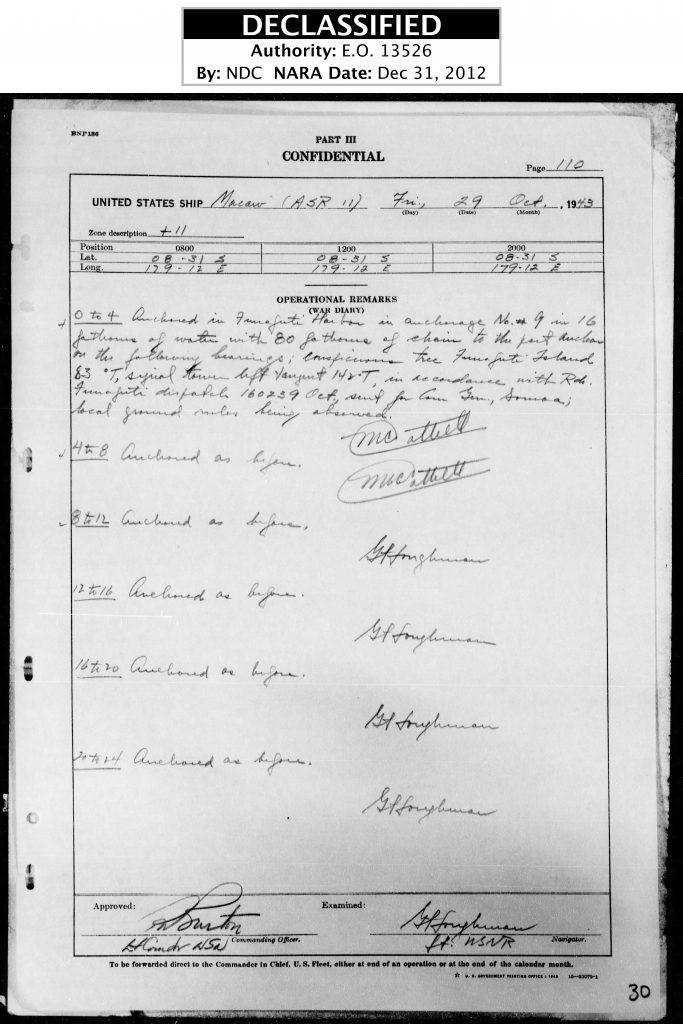 DECLASSIFIED
Authority: E.O. 13526
By: NDC NARA Date: Dec 31, 2012
BNP186
PART III
CONFIDENTIAL
Page 110
UNITED STATES SHIP Macaw (ASR 11) Fri., 29 Oct., 1943
(Day) (Date) (Month)
Zone description +11
Position 0800 1200 2000
Lat. 08-31 S 08-31 S 08-31 S
Long. 179-12 E 179-12 E 179-12 E
OPERATIONAL REMARKS
(WAR DIARY)
0 to 4 Anchored in Funafuti Harbor in anchorage No. 9 in 16
fathoms of water with 80 fathoms of chain to the port anchor
on the following bearings; conspicuous tree Funafuti Island
83 °T, signal tower left tangent 142°T, in accordance with Rdo.
Funafuti dispatch 160239 Oct, sent for Com Gen, Samoa;
local ground rules being observed.
4 to 8 Anchored as before.
8 to 12 Anchored as before.
12 to 16 Anchored as before.
16 to 20 Anchored as before.
20 to 24 Anchored as before.
Approved: Examined:
Burton
Lt Comdr USN Commanding Officer. Lt. USNR Navigator.
To be forwarded direct to the Commander in Chief, U. S. Fleet, either at end of an operation or at the end of the calendar month.
U. S. GOVERNMENT PRINTING OFFICE : 1943
30